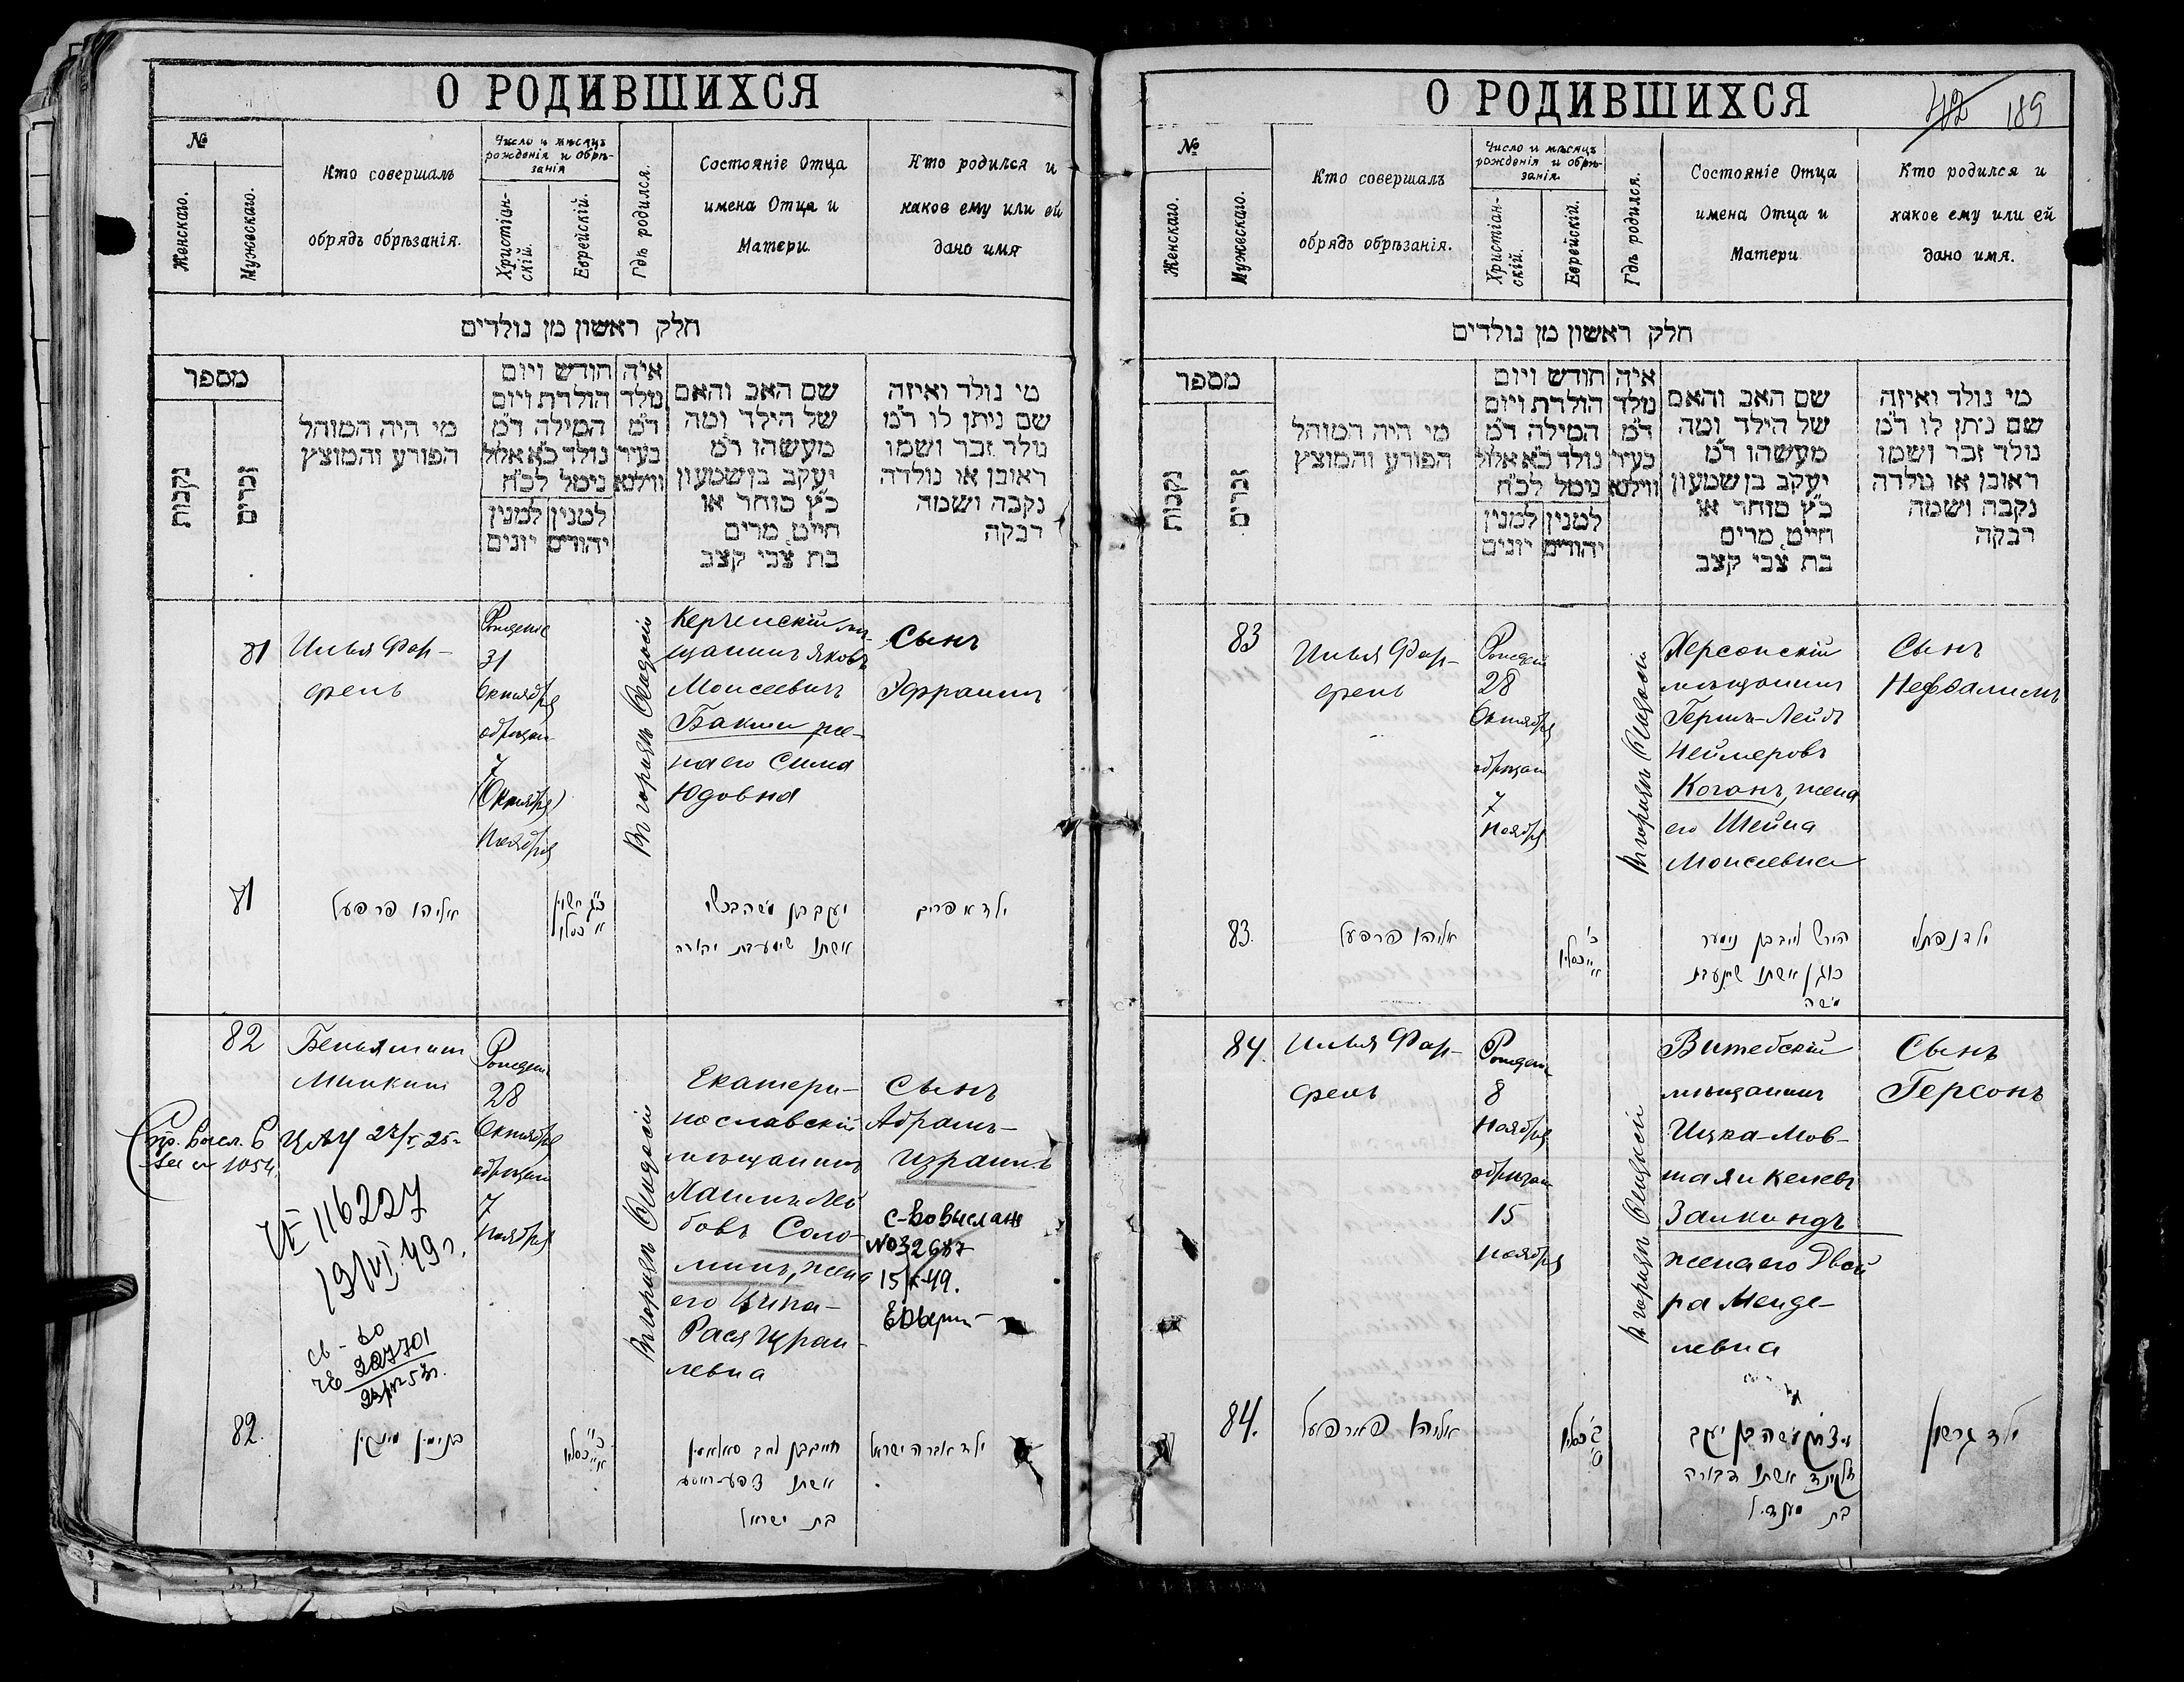 О РОДИВШИХСЯ
№
Женскаго.
Мужескаго.
Кто совершалъ
обрядъ обрѣзанія.
Число и мѣсяцъ
рожденія и обрѣ-
занія
Христіан-
скій.
Еврейскій.
Гдѣ родился.
Состояніе Отца
имена Отца и
Матери.
Кто родился и
какое ему или ей
дано имя
חלק ראשון מן נולדים
מספר
נקבות
זכרים
מי היה המוהל
הפורע והמוצץ
חודש ויום
הולדת ויום
המילה ד״מ
נולד כ״א אלול
נימל לכ״ח
למנין למנין
יהודים יונים
איה
נולד
ד״מ
בעיר
ווילנא
שם האב והאם
של הילד ומה
מעשהו ד״מ
יעקב בן שמעון
כ״ץ סוחר או
חייט, מרים
בת צבי קצב
מי נולד ואיזה
שם ניתן לו ד״מ
נולד זכר ושמו
ראובן או נולדה
נקבה ושמה
רבקה
81
Илья Фар-
фель
31
Октября
7
(Октября)
Ноября
Керченскій мѣ-
щанинъ Яковъ
Моисеевичъ
Бакши же-
на его Сима
Юдовна
Сынъ
Эфраимъ
81
אליהו פרפעל
יעקב בן משה בכשי
אשתו סימע בת יהודה
ילד אפרים
82
Беньяминъ
Минкинъ
28
Октября
7
Ноября
Екатери-
нославскій
мѣщанинъ
Хаимъ Лей
бовъ Соло-
минъ, жена
его Ципа-
Рася Израи-
левна
Сынъ
Абрамъ-
Израиль
ЦАУ
116227
19/VI 49г.
с-во выслан
№32687
св-во
82.
בנימין מינקין
חיים בן לייב סאלאמין
אשתו ציפע-ראסע
בת ישראל
ילד אברהם ישראל
О РОДИВШИХСЯ
42 189
№
Женскаго.
Мужескаго.
Кто совершалъ
обрядъ обрѣзанія.
Число и мѣсяцъ
рожденія и обрѣ-
занія.
Христіан-
скій.
Еврейскій.
Гдѣ родился.
Состояніе Отца
имена Отца и
Матери
Кто родился и
какое ему или ей
дано имя.
חלק ראשון מן נולדים
מספר
נקבות
זכרים
מי היה המוהל
הפורע והמוצץ
חודש ויום
הולדת ויום
המילה ד״מ
נולד כ״א אלול
נימל לכ״ח
למנין למנין
יהודים יונים
איה
נולד
ד״מ
בעיר
ווילנא
שם האב והאם
של הילד ומה
מעשהו ד״מ
יעקב בן שמעון
כ״ץ סוחר או
חייט, מרים
בת צבי קצב
מי נולד ואיזה
שם ניתן לו ד״מ
נולד זכר ושמו
ראובן או נולדה
נקבה ושמה
רבקה
83
Илья Фар-
фель
28
Октября
7
Ноября
Херсонскій
мѣщанинъ
Гершъ-Лейбъ
Неймеровъ
Коганъ, жена
его Шейна
Моисеевна
Сынъ
Нефталимъ
83.
אליהו פרפעל
הירש לייב בן
כוגן אשתו שיינע בת
משה
ילד נפתלי
84.
Илья Фар-
фель
8
Ноября
15
Ноября
Витебскій
мѣщанинъ
Ицка-Мов-
ша Янкелевъ
Залкиндъ
жена его Двей
ра Менде-
левна
Сынъ
Герсонъ
84.
אליהו פארפעל
יצחק משה בן יעקב
זלקינד אשתו דבורה
בת מענדיל
ילד גרשון